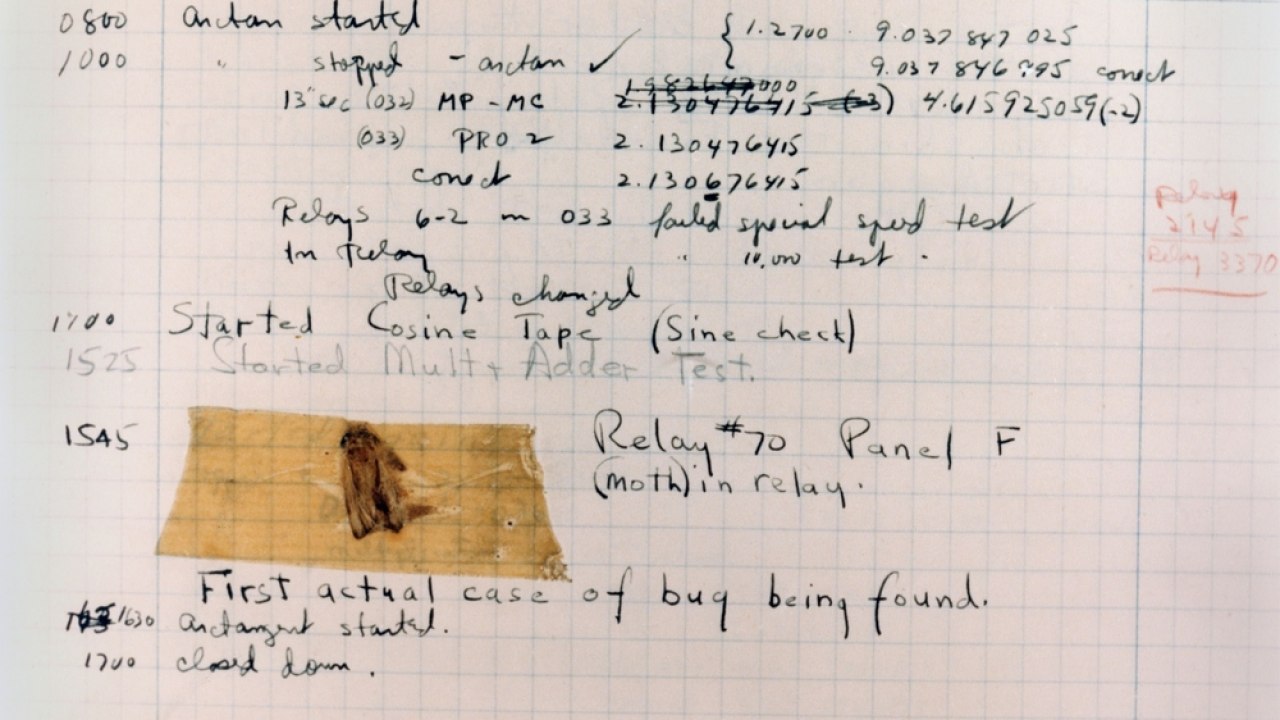 0800 arctan started { 1.2700 9.037 847 025
1000 " stopped - arctan ✓ 9.037 846 995 correct
13" sec (032) MP - MC 1.982647000 2.130476415 (-3) 4.615925059(-2)
(033) PRO 2 2.130476415
correct 2.130676415
Relays 6-2 in 033 failed special speed test
In Relay " 10,000 test.
Relays changed
Relay
2145
Relay 3370
1700 Started Cosine Tape (Sine check)
1525 Started Mult + Adder Test.
1545 Relay #70 Panel F
(moth) in relay.
First actual case of bug being found.
1630 arctangent started.
1700 closed down.